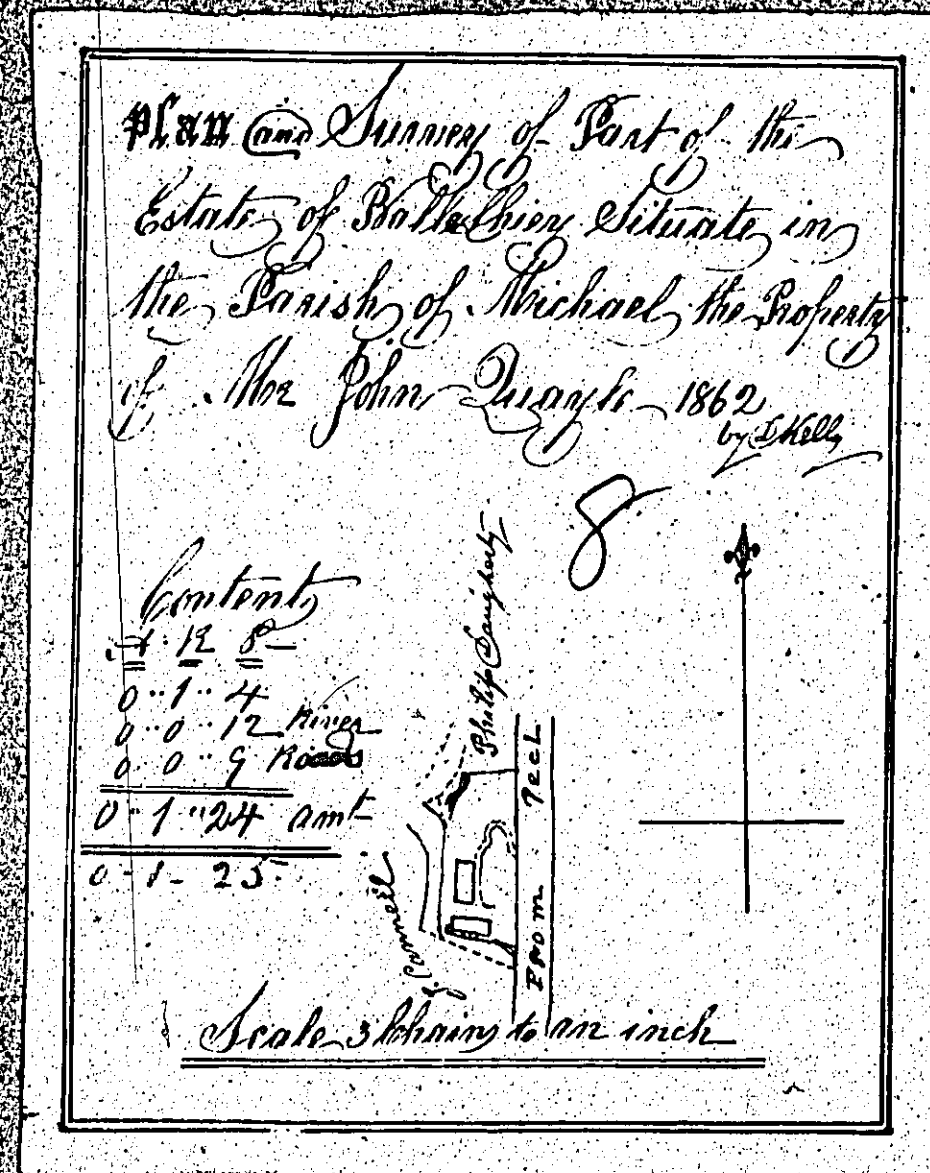 Plan and Survey of Part of the
Estate of Situate in
the Parish of Michael the Property
of Mr John Quayle 1862
by Kelly
8
Content
A R P
0 1 4
0 0 12 River
0 0 9 Roads
0 1 24 amt
0 1 25
Philip
J. Cannell
From Peel
Scale 3 Chains to an inch